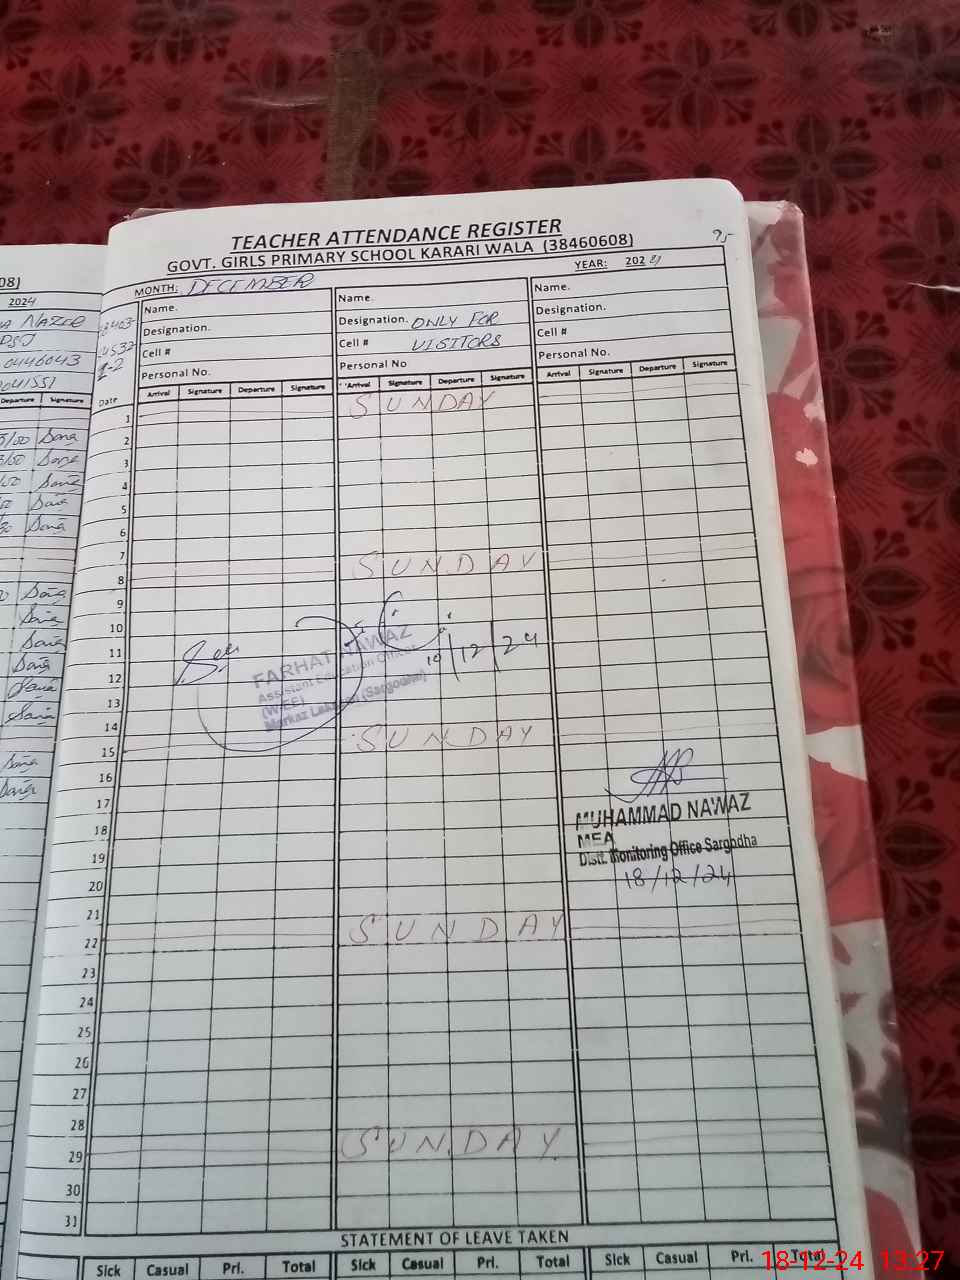 08)
2024
A NAZEO
0446043
0041551
Departure Signature
TEACHER ATTENDANCE REGISTER
GOVT. GIRLS PRIMARY SCHOOL KARARI WALA (38460608)
95
MONTH: DECEMBER
YEAR: 2024
Name.
Designation.
Cell #
Personal No.
Name.
Designation. ONLY FOR
Cell # VISITORS
Personal No
Name.
Designation.
Cell #
Personal No.
Date
Arrival Signature Departure Signature Arrival Signature Departure Signature Arrival Signature Departure Signature
1 SUNDAY
2
3
4
5
6
7
8 SUNDAY
9
10
11
12
13
14
15 SUNDAY
16
17
18
19
20
21
22 SUNDAY
23
24
25
26
27
28
29 SUNDAY
30
31
10/12/24
FARHAT NAWAZ
Assistant Education Officer
(W-EE)
Markaz (Sargodha)
MUHAMMAD NAWAZ
MEA
Distt. Monitoring Office Sargodha
18/12/24
STATEMENT OF LEAVE TAKEN
Sick Casual Prl. Total Sick Casual Prl. Total Sick Casual Prl. Total
18-12-24 13:27